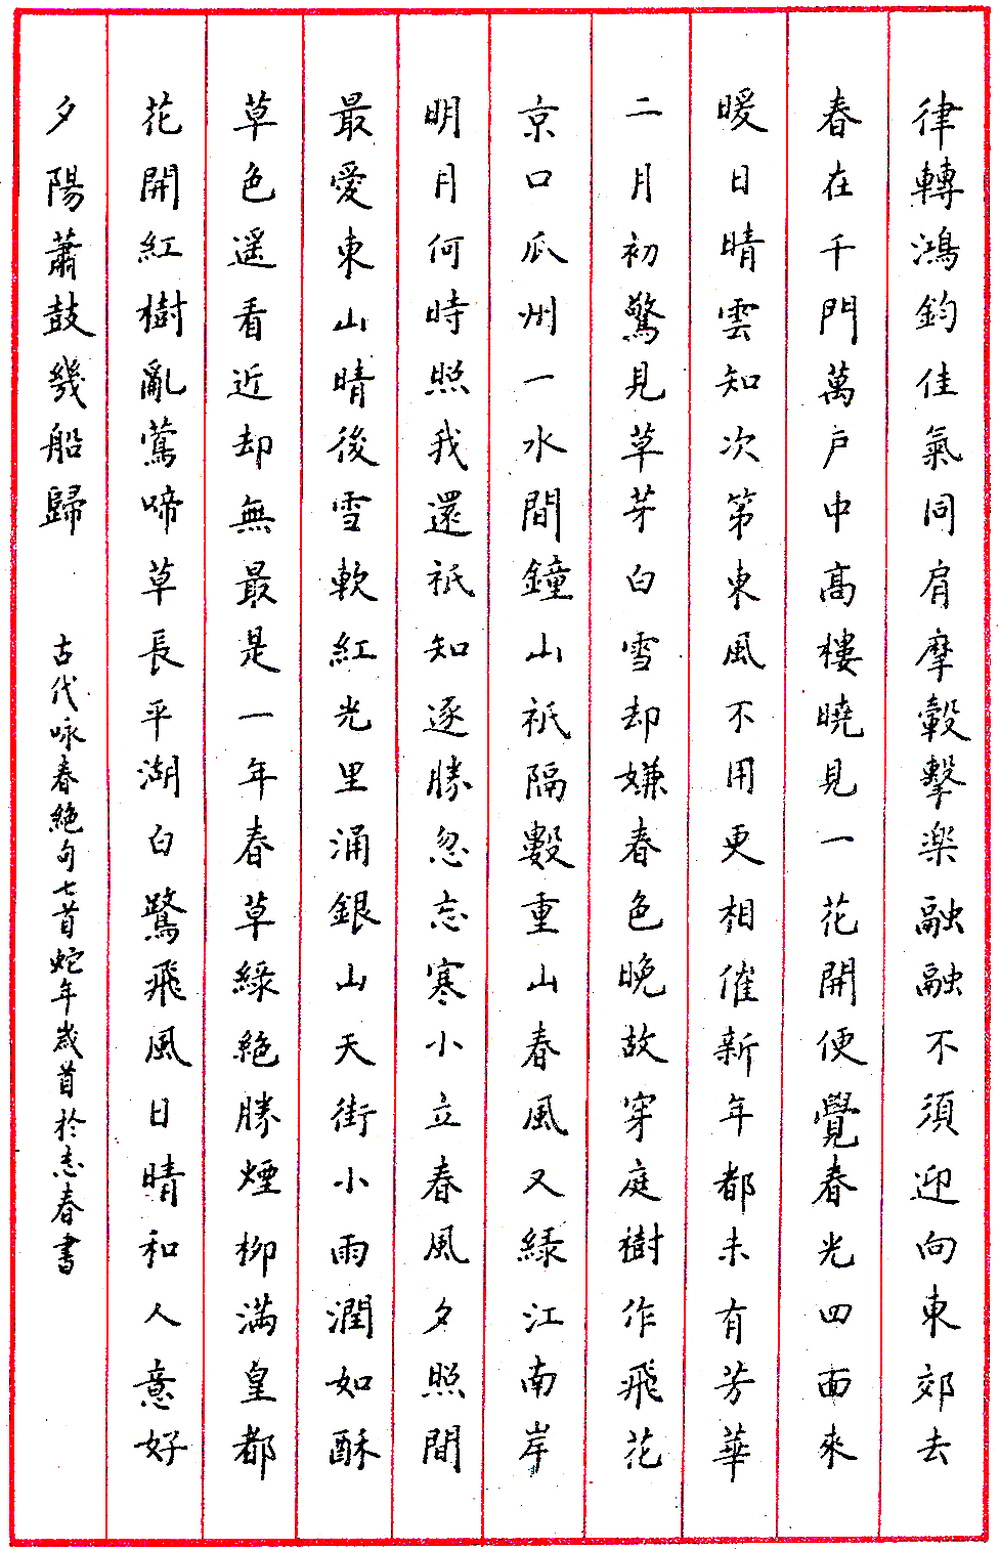 律轉鴻鈞佳氣同肩摩轂擊楽融融不須迎向東郊去
春在千門萬戶中高樓曉見一花開便覺春光四面來
暖日晴雲知次第東風不用更相催新年都未有芳華
二月初驚見草芽白雪却嫌春色晚故穿庭樹作飛花
京口瓜州一水間鐘山祇隔數重山春風又綠江南岸
明月何時照我還祇知逐勝忽忘寒小立春風夕照間
最愛東山晴後雪軟紅光里涌銀山天街小雨潤如酥
草色遥看近却無最是一年春草綠絕勝煙柳滿皇都
花開紅樹亂鶯啼草長平湖白鷺飛風日晴和人意好
夕陽蕭鼓幾船歸 古代咏春絕句七首蛇年歲首於志春書